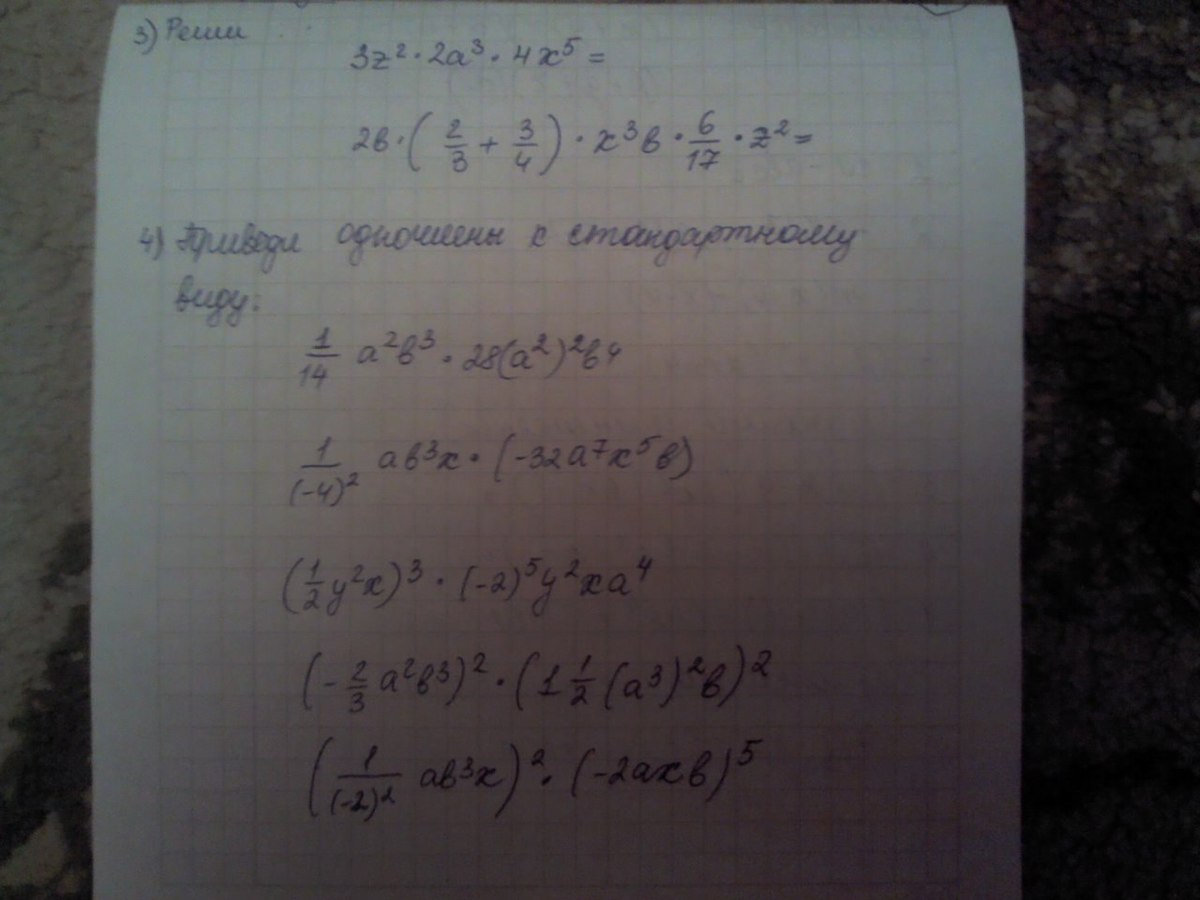 3) Реши
3z²·2a³·4x⁵=
2в·(2/3+3/4)·x³в·6/17·z²=
4) Приведи одночлены к стандартному
виду:
1/14 a²в³·28(a²)²в⁴
1/(-4)² aв³x·(-32a⁷x⁵в)
(1/2y²x)³·(-2)⁵y²xa⁴
(-2/3a²в³)²·(1 1/2(a³)²в)²
(1/(-2)² aв³x)²·(-2axв)⁵